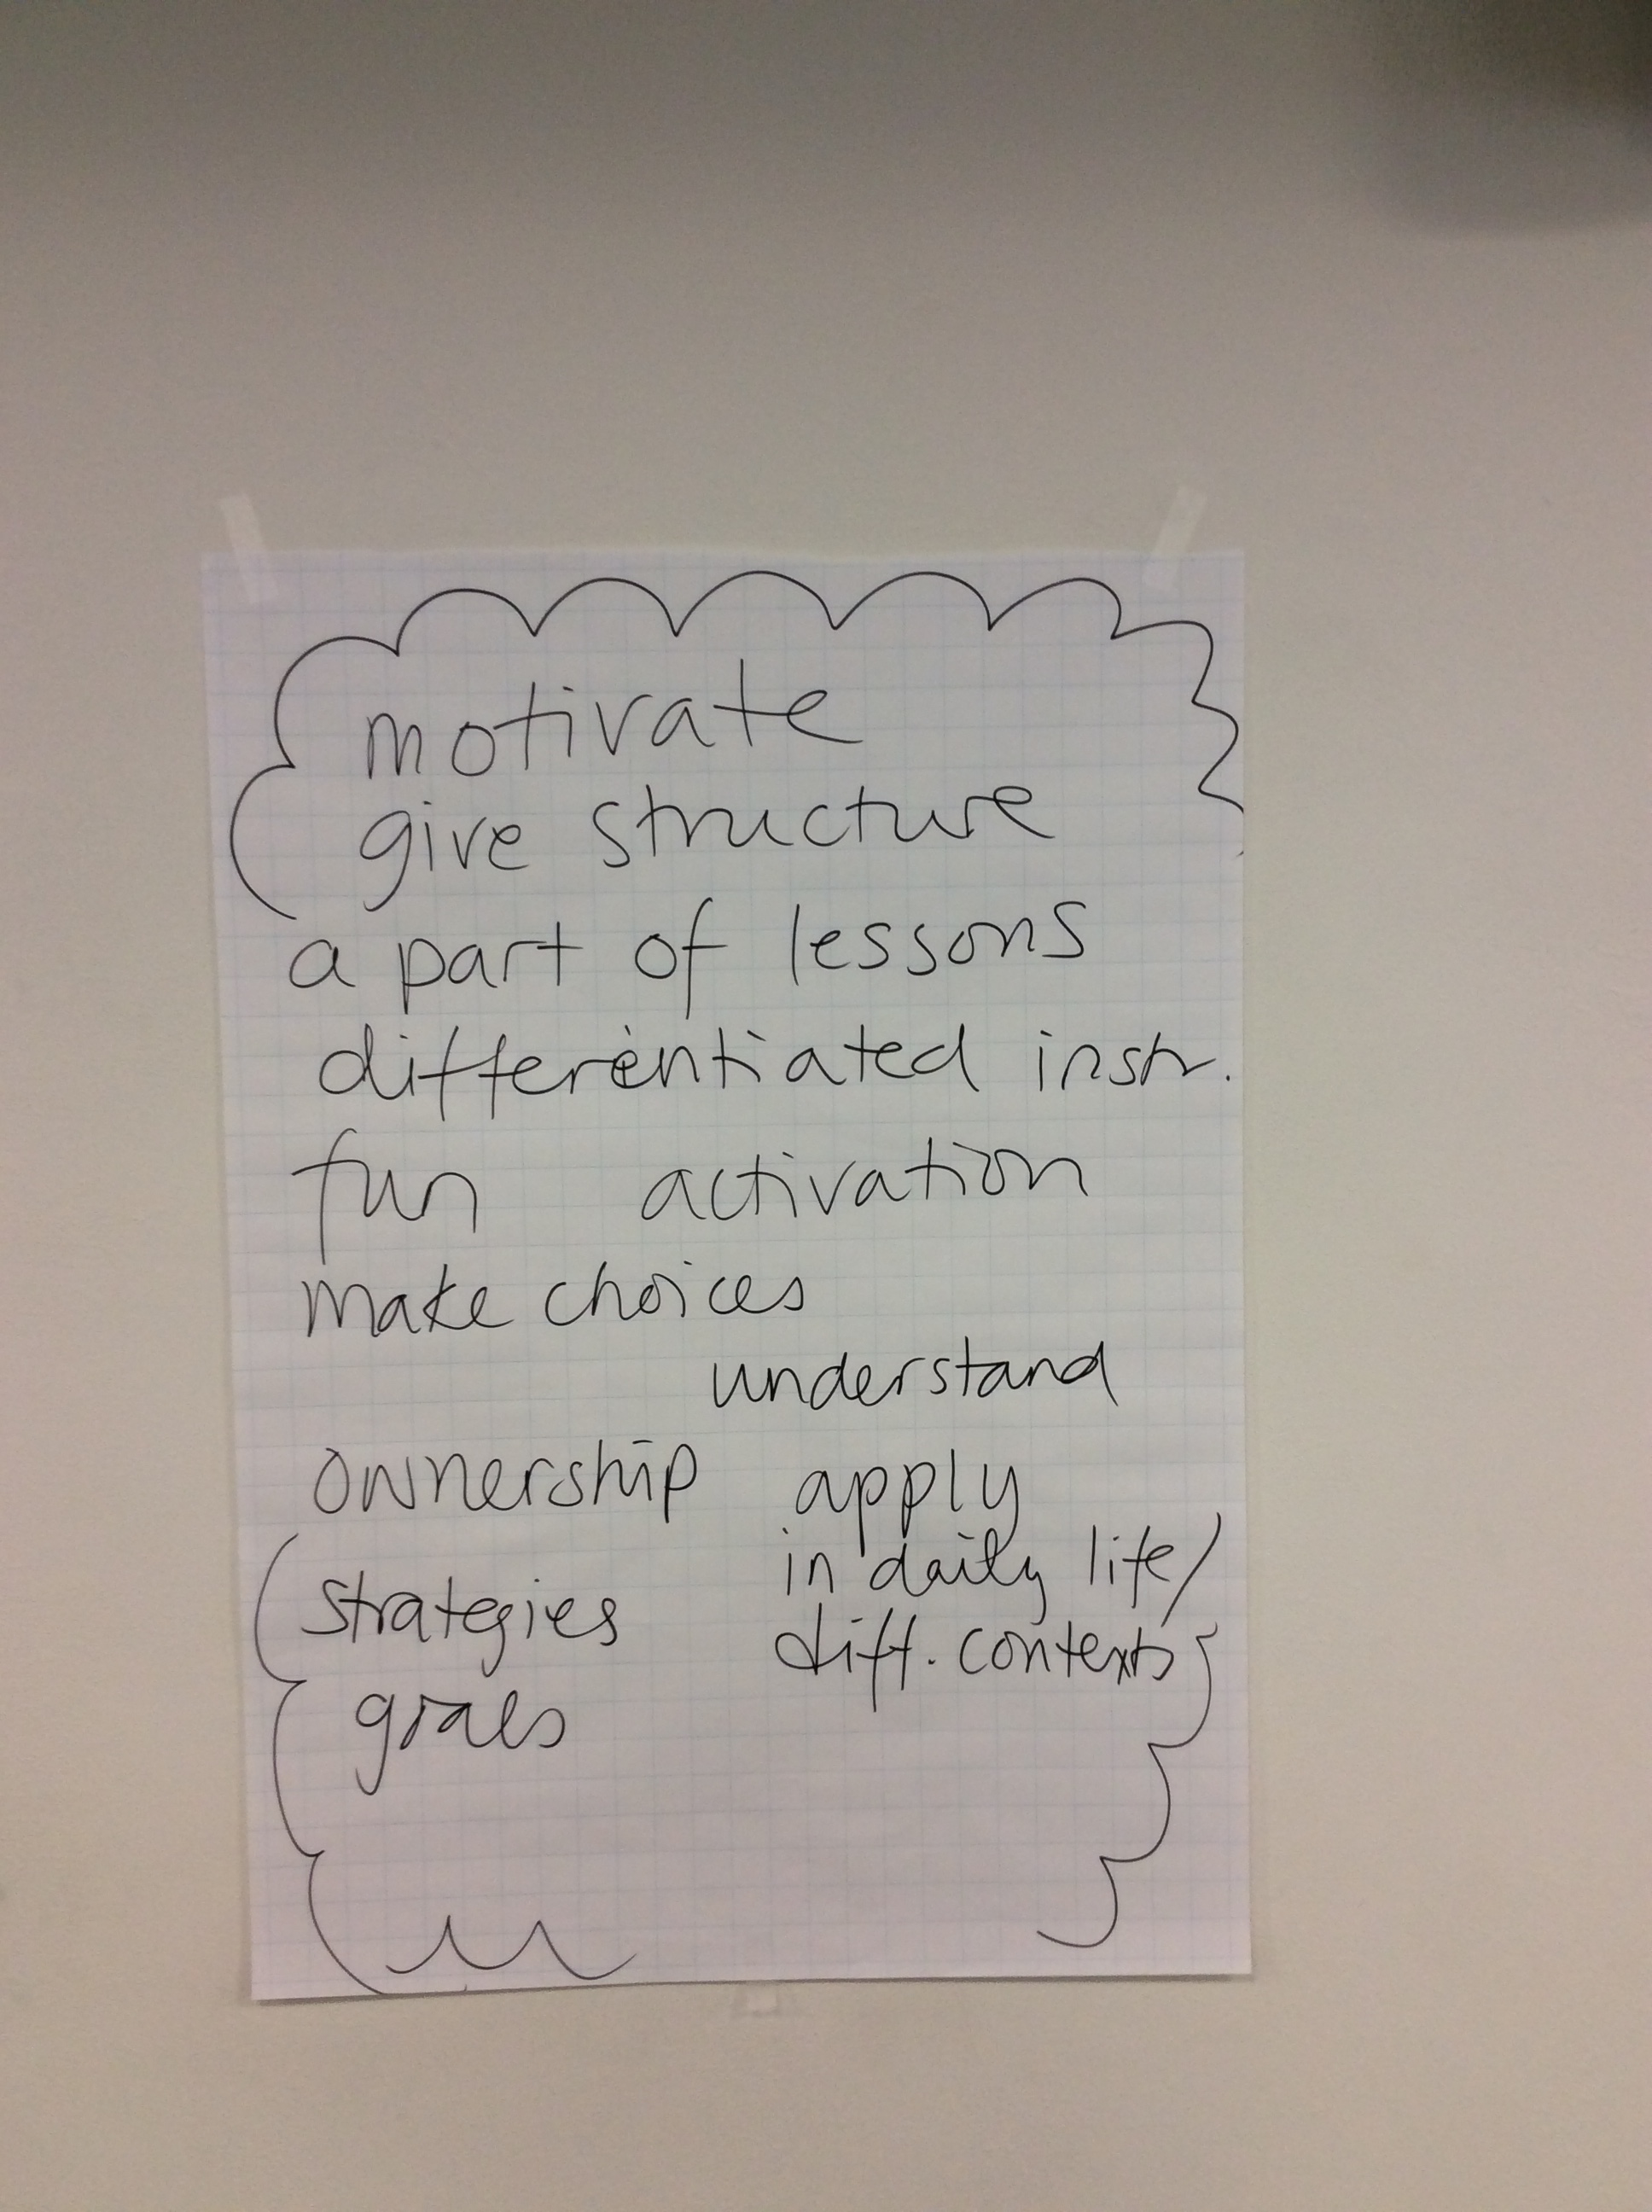 motivate
give structure
a part of lessons
differentiated instr.
fun activation
make choices
understand
ownership apply
in daily life/
strategies diff. contexts
goals